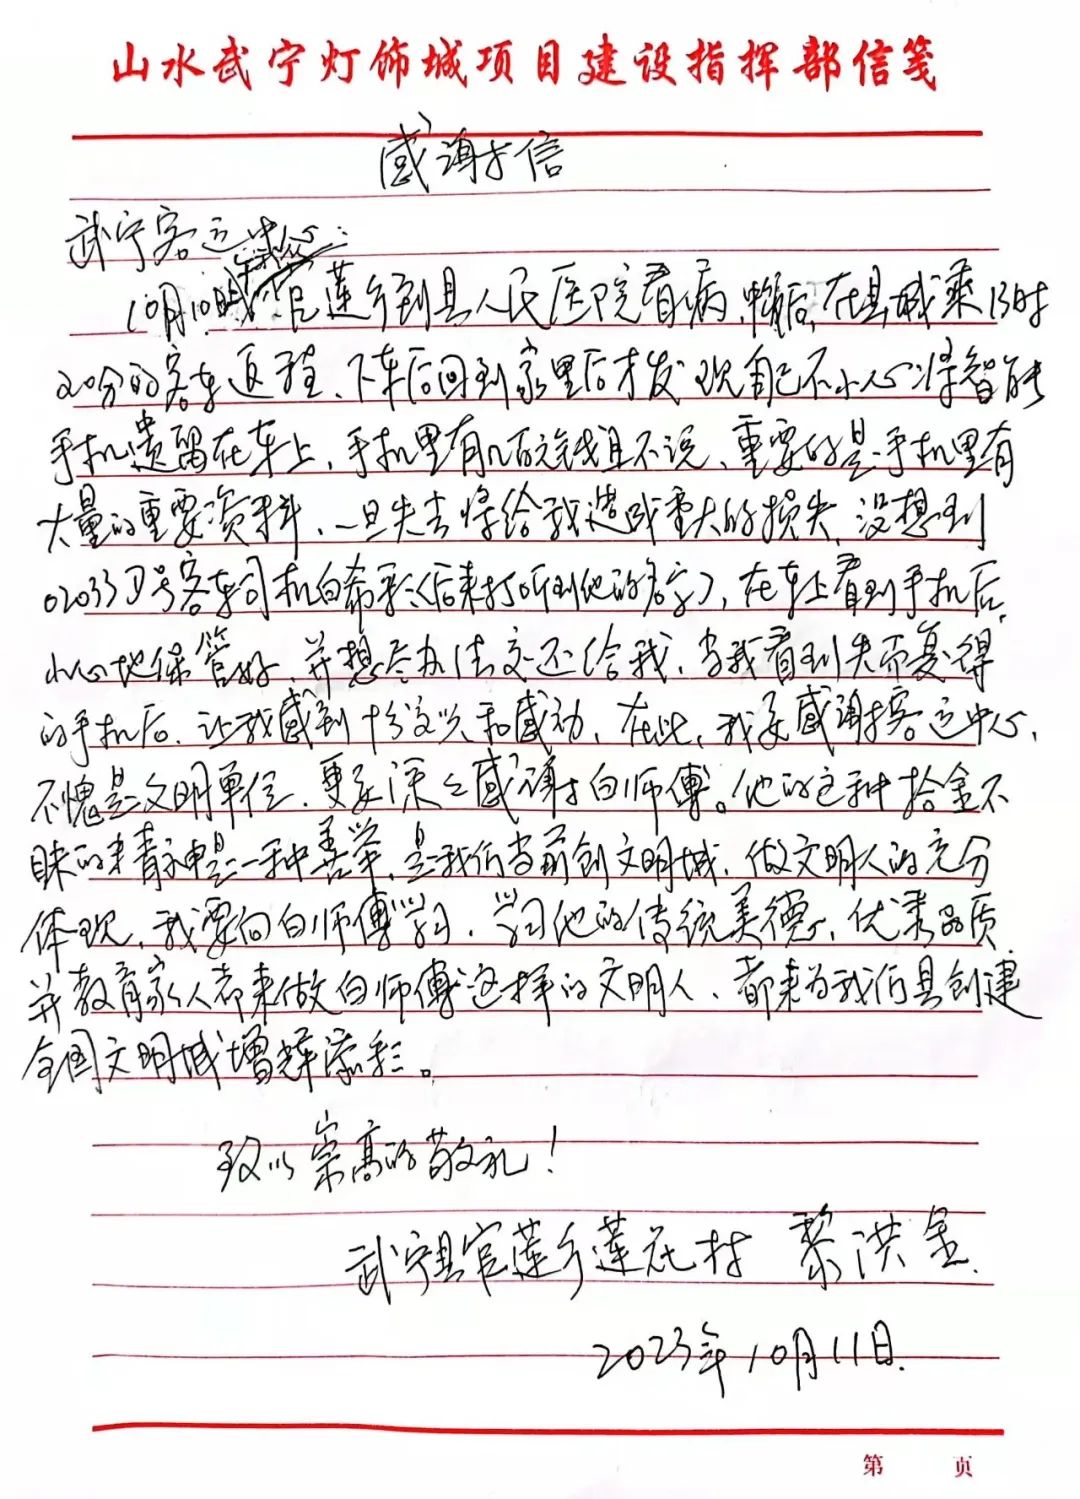 山水武宁灯饰城项目建设指挥部信笺
感谢信
武宁客运中心:
10月10日我从官莲乡到县人民医院看病,返程在县城乘13时
20分的客车返程、下车后回到家里后才发现自己不小心将智能
手机遗留在车上,手机里有几百元钱且不说、重要的是手机里有
大量的重要资料、一旦失去将给我造成重大的损失,没想到
02033D号客车司机白希彩(后来打听到他的名字),在车上看到手机后,
小心地保管好、并想尽办法交还给我、当我看到失而复得
的手机后、让我感到十分高兴和感动、在此、我要感谢客运中心、
不愧是文明单位、更要深深感谢白师傅。他的这种拾金不
昧的精神是一种善举,是我们当前创文明城、做文明人的充分
体现、我要向白师傅学习、学习他的传统美德、优秀品质
并教育家人都来做白师傅这样的文明人、都来为我们县创建
全国文明城增辉添彩。
致以崇高的敬礼!
武宁县官莲乡莲花村 黎洪金.
2023年10月11日.
第 页